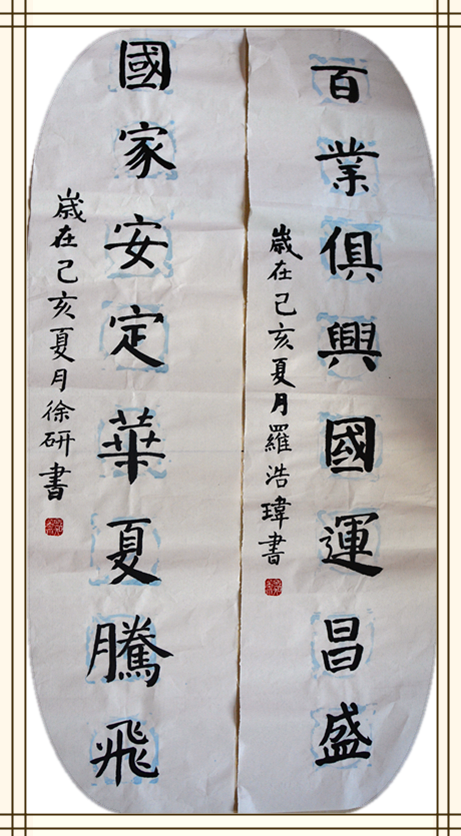 百業俱興國運昌盛
歲在己亥夏月羅浩瑋書
國家安定華夏騰飛
歲在己亥夏月徐研書